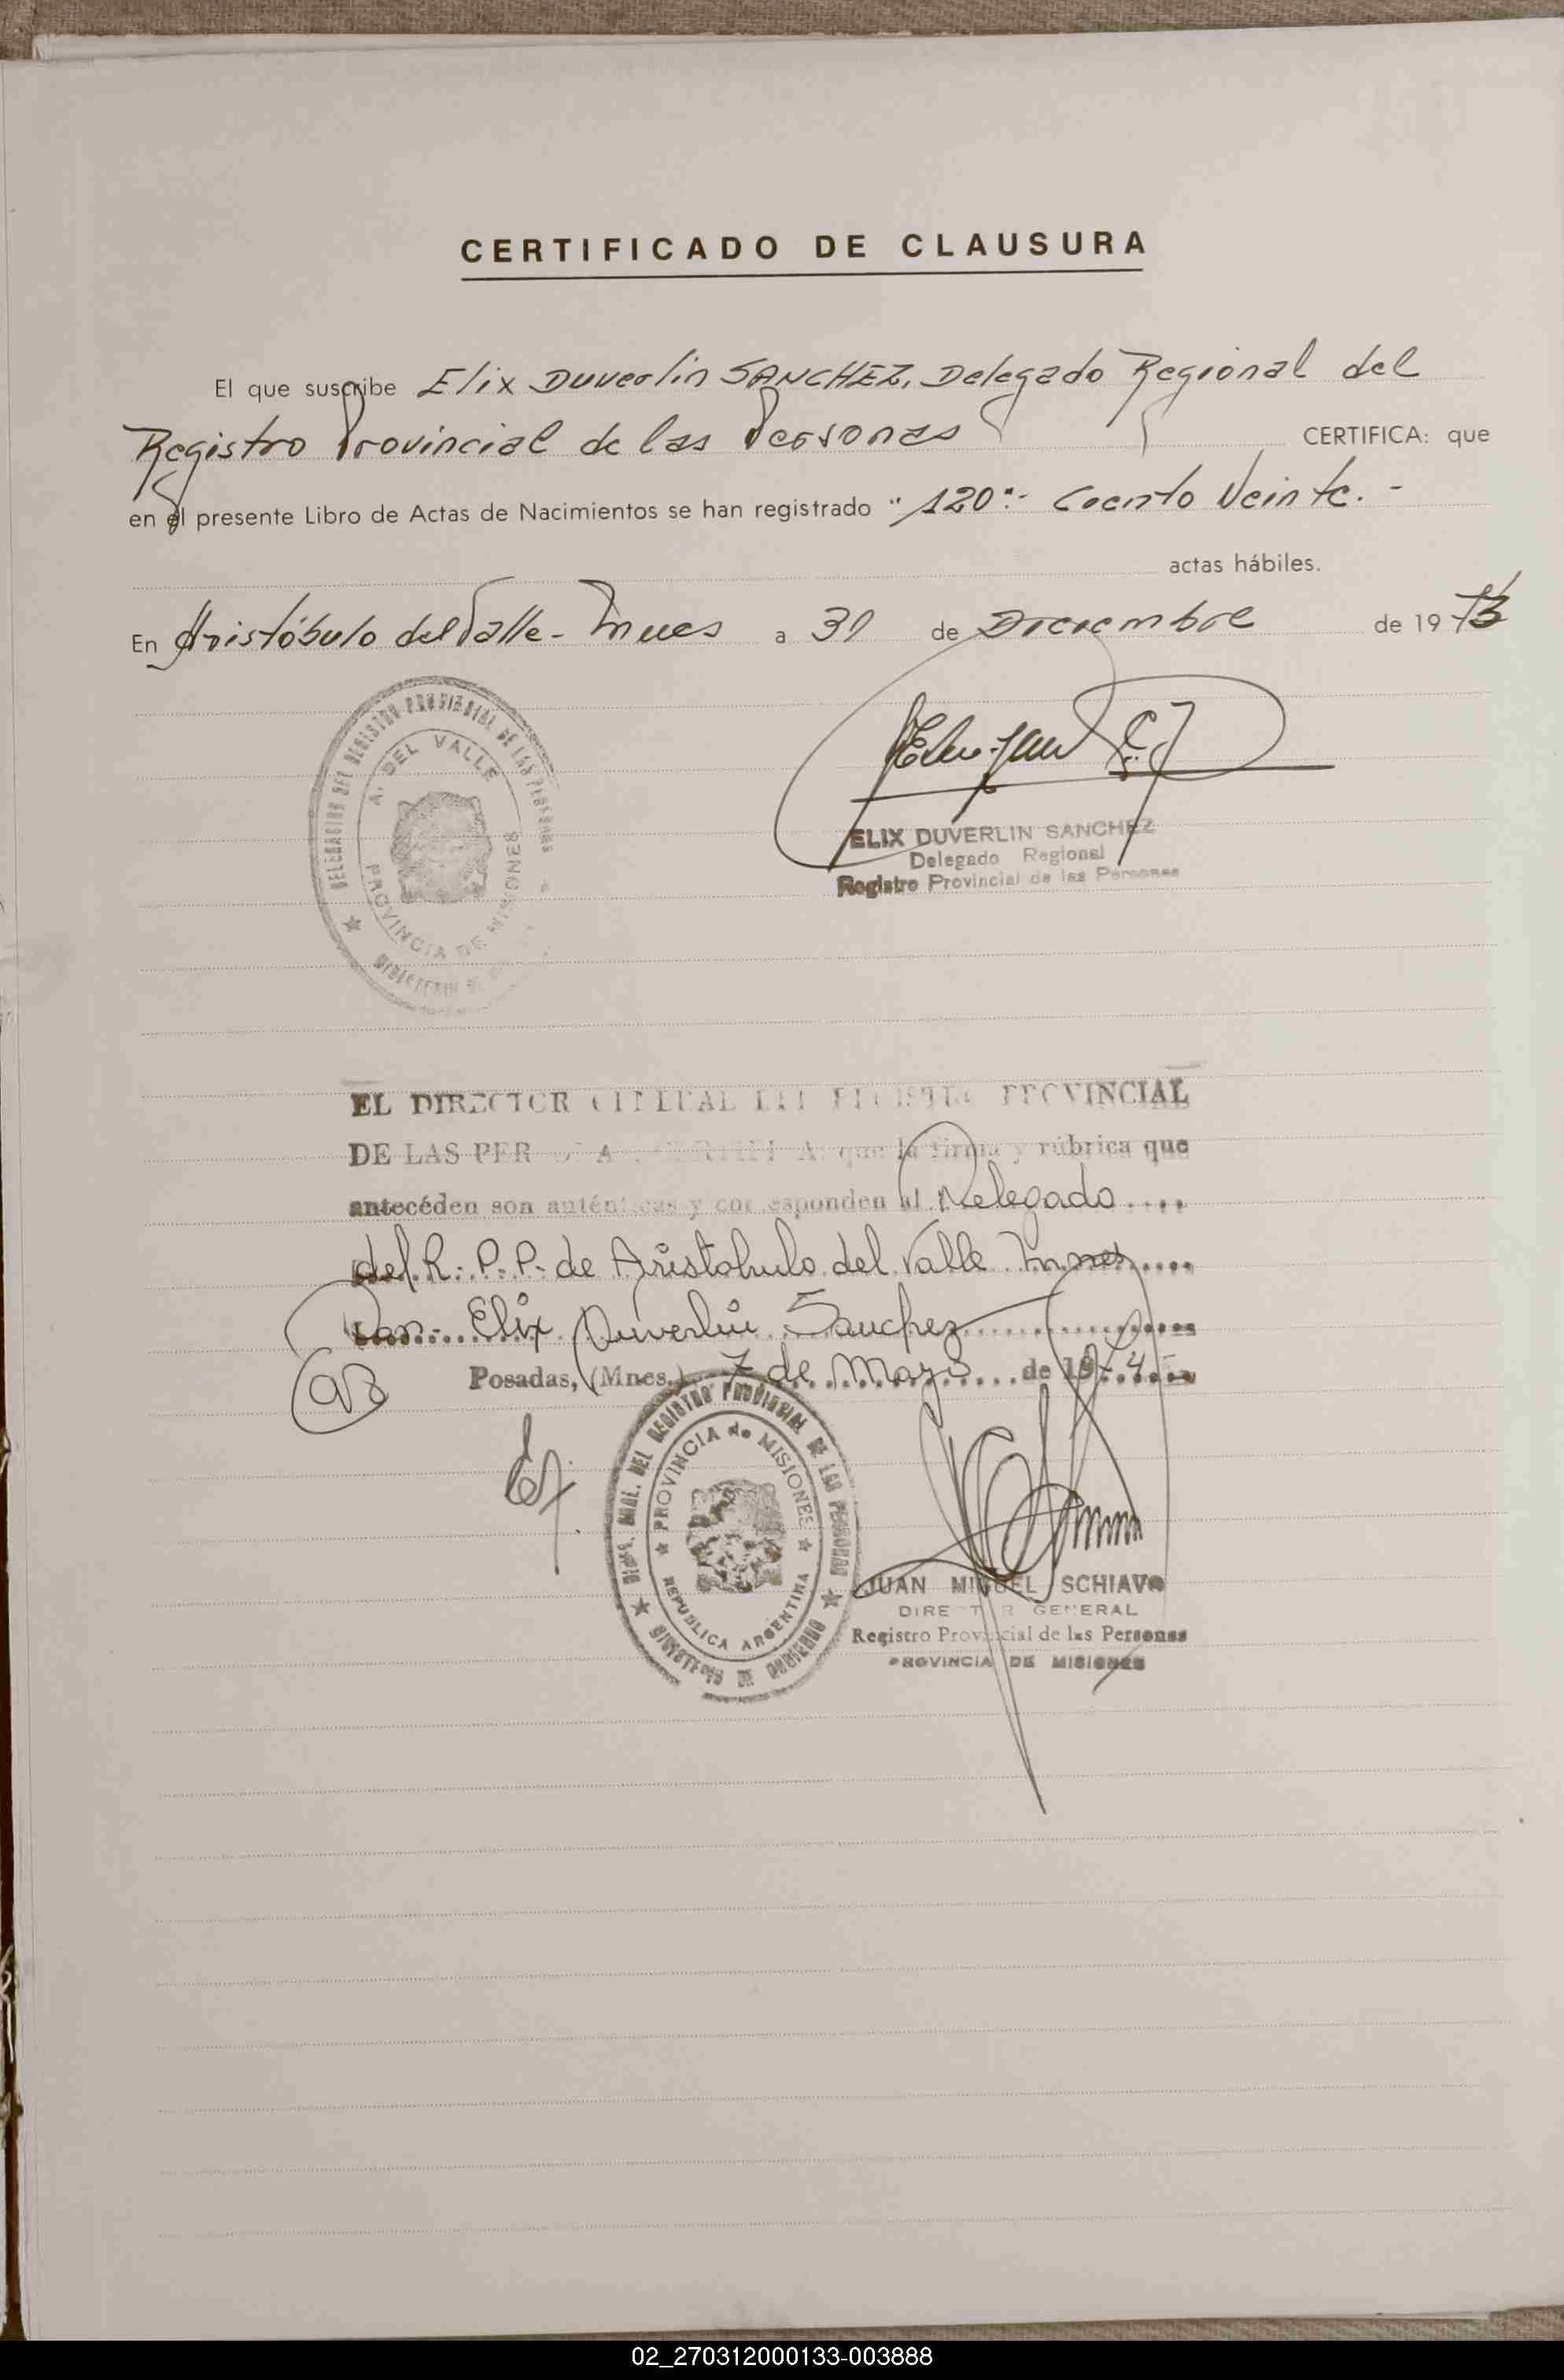 CERTIFICADO DE CLAUSURA
El que suscribe Elix Duverlin SANCHEZ, Delegado Regional del
Registro Provincial de las Personas CERTIFICA: que
en el presente Libro de Actas de Nacimientos se han registrado "120"- Ciento Veinte.-
actas hábiles.
En Aristóbulo del Valle - Mnes a 31 de Diciembre de 1973
DELEGACION DEL REGISTRO PROVINCIAL DE LAS PERSONAS
A. DEL VALLE
PROVINCIA DE MISIONES
MINISTERIO DE
ELIX DUVERLIN SANCHEZ
Delegado Regional
Registro Provincial de las Personas
EL DIRECTOR GENERAL DEL REGISTRO PROVINCIAL
DE LAS PER que la firma y rúbrica que
antecéden son auténticas y corresponden al Delegado....
del R.P.P. de Aristobulo del Valle Mnes.....
Don.- Elix Duverlin Sanchez
Posadas, (Mnes.) 7 de Marzo de 1974
DIR. GRAL. DEL REGISTRO PROVINCIAL DE LAS PERSONAS
PROVINCIA de MISIONES
REPUBLICA ARGENTINA
MINISTERIO DE GOBIERNO
JUAN MIGUEL SCHIAVO
DIRECTOR GENERAL
Registro Provincial de las Personas
PROVINCIA DE MISIONES
02_270312000133-003888